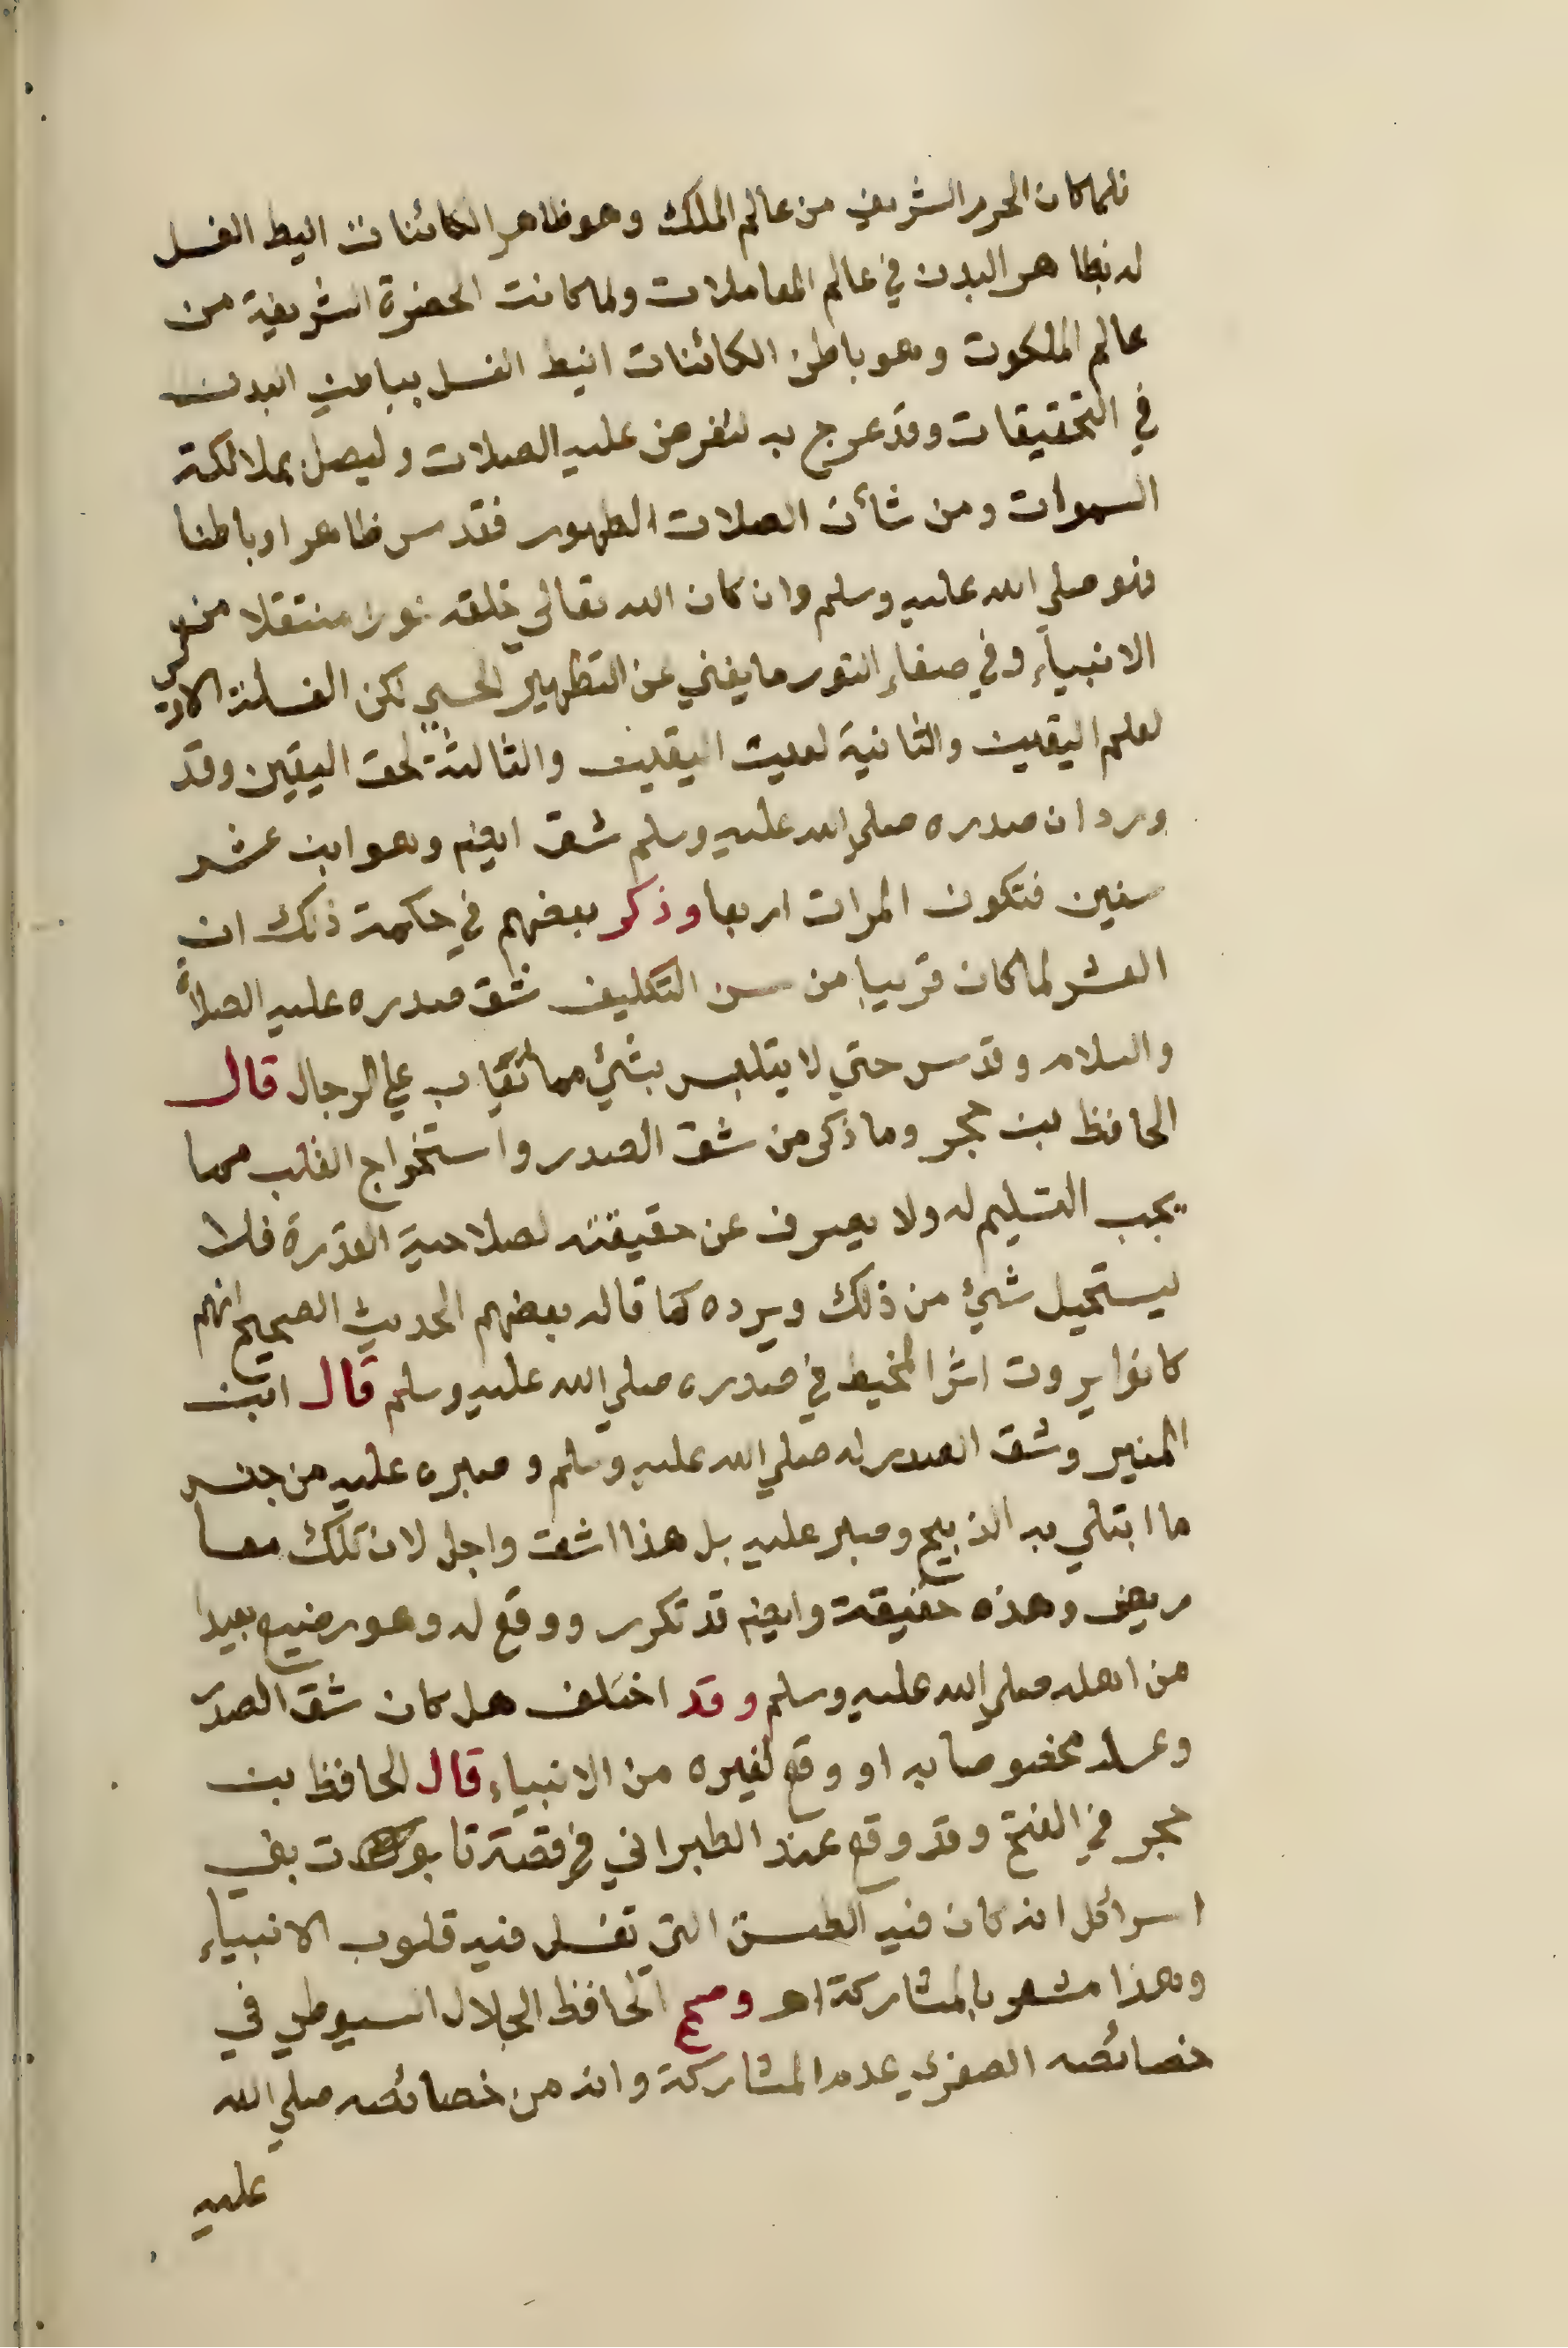 فلما كان الحرم الشريف من عالم الملك وهو ظاهر الكائنات انيط الغسل
له بظاهر البدن في عالم المعاملات ولما كانت الحضرة الشريفة من
عالم الملكوت وهو باطن الكائنات انيط الغسل بباطن البدن
في التحقيقات وقد عرج به لتفرض عليه الصلات وليصل بملائكة
السموات ومن شأن الصلات الطهور فقدس ظاهرا وباطنا
فهو صلي الله عليه وسلم وان كان الله تعالي خلقه نورا منتقلا من
الانبياء وفي صفاء النور ما يغني عن التطهير الحسي لكن الغسلة الاولي
لعلم اليقين والثانية لعين اليقين والثالثة لحق اليقين وقد
ورد ان صدره صلي الله عليه وسلم شق ايضا وهو ابن عشر
سنين فتكون المرات اربعا وذكر بعضهم في حكمة ذلك ان
العشر لما كان قريبا من سن التكليف شق صدره عليه الصلاة
والسلام وقدس حتي لا يتلبس بشئ مما يعاب علي الرجال قال
الحافظ بن حجر وما ذكر من شق الصدر واستخراج القلب مما
يجب التسليم له ولا يصرف عن حقيقته لصلاحية القدرة فلا
يستحيل شئ من ذلك ويرده كما قاله بعضهم الحديث الصحيح انهم
كانوا يرون اثر المخيط في صدره صلي الله عليه وسلم قال ابن
المنير وشق الصدر له صلي الله عليه وسلم وصبره عليه من جنس
ما ابتلي به الذبيح وصبر عليه بل هذا اشق واجل لان تلك معا
ريض وهذه حقيقة وايضا قد تكرر ووقع له وهو رضيع بعيدا
من اهله صلي الله عليه وسلم وقد اختلف هل كان شق الصدر
وغسله مخصوصا به او وقع لغيره من الانبياء قال الحافظ بن
حجر في الفتح وقد وقع عند الطبراني في قصة تابوت بني
اسرائل انه كان فيه الطست التي تغسل فيه قلوب الانبياء
وهذا مشعر بالمشاركة اهـ وصحح الحافظ الجلال السيوطي في
خصائصه الصغري عدم المشاركة وانه من خصائصه صلي الله
عليه